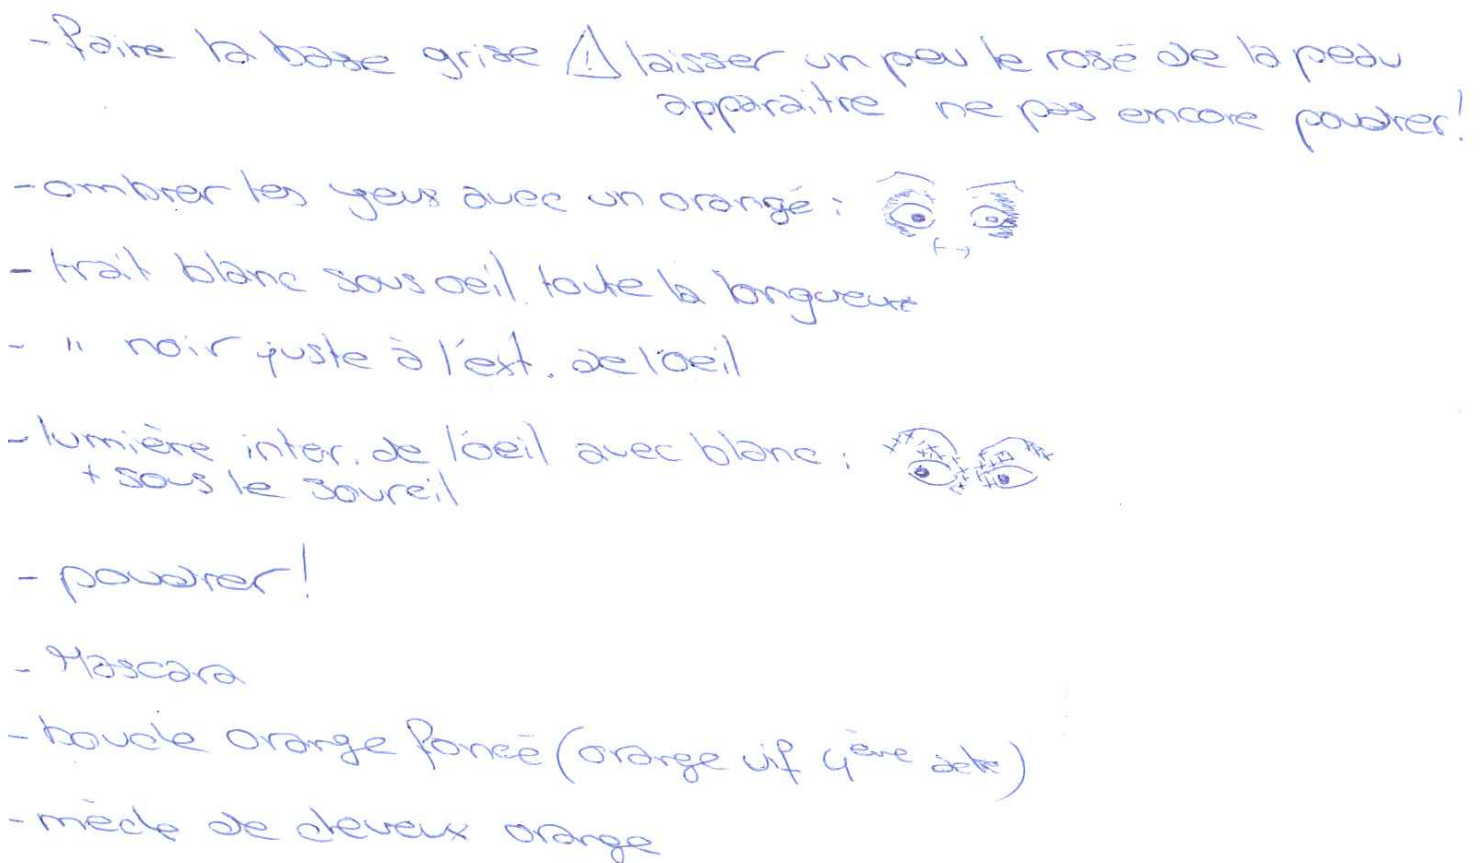 - faire la base grise ⚠ laisser un peu le rosé de la peau
apparaitre ne pas encore poudrer!
- ombrer les yeux avec un orangé :
- trait blanc sous oeil toute la longueur
- " noir juste à l'ext. de l'oeil
- lumière inter. de l'oeil avec blanc :
+ sous le soureil
- poudrer!
- Mascara
- bouche orange foncé (orange vif 4ème acte)
- mèche de cheveux orange